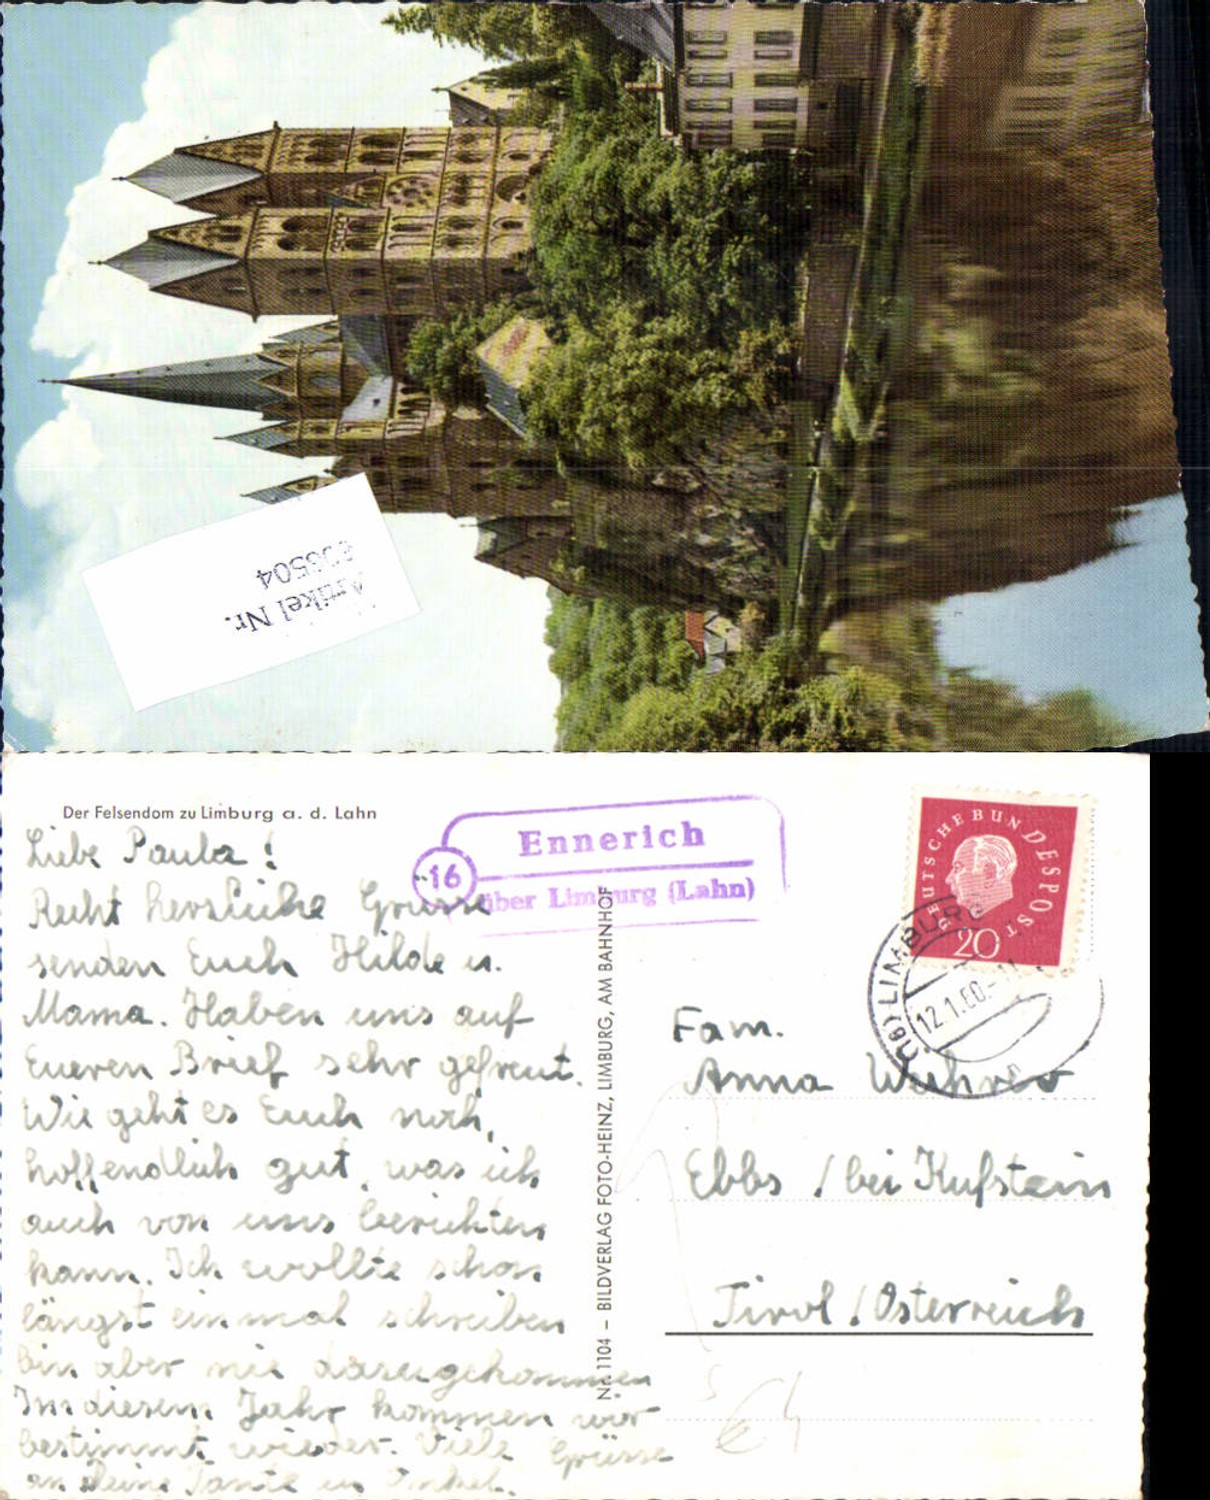 Artikel Nr.
Der Felsendom zu Limburg a. d. Lahn
16
Ennerich
über Limburg (Lahn)
DEUTSCHE BUNDESPOST
20
(16) LIMBURG
12.1.60.-11
Liebe Paula!
Recht herzliche Grüsse
senden Euch Hilde u.
Mama. Haben uns auf
Eueren Brief sehr gefreut.
Wie geht es Euch noch,
hoffendlich gut, was ich
auch von uns berichten
kann. Ich wollte schon
längst einmal schreiben
bin aber nie dazugekommen
Im diesem Jahr kommen wir
bestimmt wieder. Viele Grüsse
an Deine Tante u. Onkel.
Nr. 1104 – BILDVERLAG FOTO-HEINZ, LIMBURG, AM BAHNHOF
Fam.
Anna Wuhrer
Ebbs / bei Kufstein
Tirol / Österreich